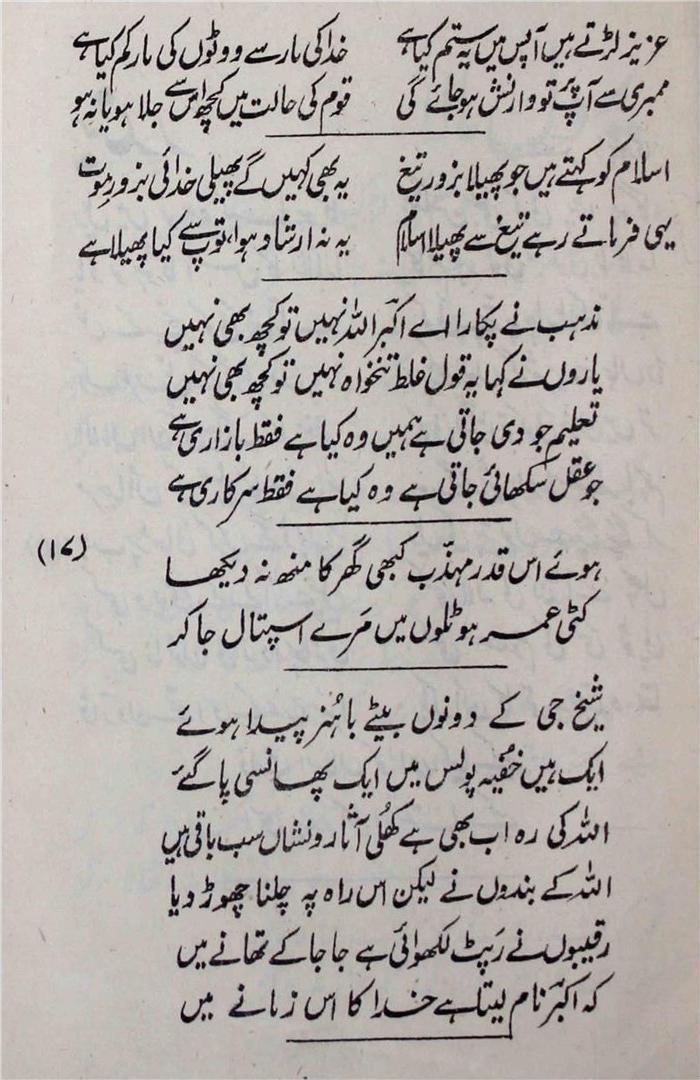 عزیز لڑتے ہیں آپس میں یہ ستم کیا ہے خدا کی مار سے ووٹوں کی مار کم کیا ہے
ممبری سے آپ پر تو وارنش ہو جائے گی قوم کی حالت میں کچھ اس سے جلا ہو یا نہ ہو
اسلام کو کہتے ہیں جو پھیلا بزور تیغ یہ بھی کہیں گے پھیلی خدائی بزور موت
یہی فرماتے رہے تیغ سے پھیلا اسلام یہ نہ ارشاد ہوا، توپ سے کیا پھیلا ہے
مذہب نے پکارا اے اکبرؔ اللہ نہیں تو کچھ بھی نہیں
یاروں نے کہا یہ قول غلط تنخواہ نہیں تو کچھ بھی نہیں
تعلیم جو دی جاتی ہے ہمیں وہ کیا ہے فقط بازاری ہے
جو عقل سکھائی جاتی ہے وہ کیا ہے فقط سرکاری ہے
(۱۷)
ہوئے اس قدر مہذّب کبھی گھر کا منھ نہ دیکھا
کٹی عمر ہوٹلوں میں مَرے اسپتال جا کر
شیخ جی کے دونوں بیٹے باہُنر پیدا ہوئے
ایک ہیں خُفیہ پولس میں ایک پھانسی پا گئے
اللہ کی رہ اب بھی ہے کھُلی آثار و نشاں سب باقی ہیں
اللہ کے بندوں نے لیکن اس راہ پہ چلنا چھوڑ دیا
رقیبوں نے رَپٹ لکھوائی ہے جا جا کے تھانے میں
کہ اکبرؔ نام لیتا ہے خدا کا اس زمانے میں